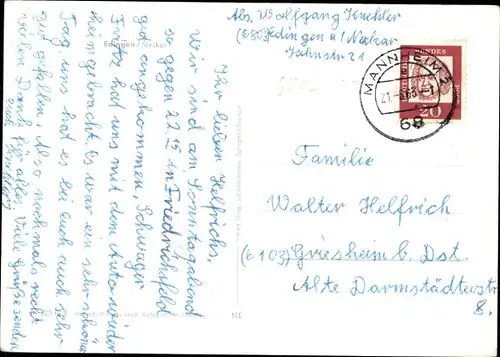 Abs. Wolfgang Kuchler
(6803) Edingen a/ Neckar
Jahnstr. 21
MANNHEIM 2
68
20
Edingen / Neckar
Ihr lieben Helfrichs,
wir sind am Sonntagabend
gegen 22 15 in Friedrichsfeld
gut angekommen, Schwager
Fritz hat uns mit dem Auto wieder
heimgebracht. Es war ein sehr schöner
Tag uns hat es bei euch auch sehr
gut gefallen. Also nochmals recht
vielen Dank für alles. Viele Grüße senden
euch
Familie
Walter Helfrich
(6103) Griesheim b. Dst.
Alte Darmstädterstr
8.